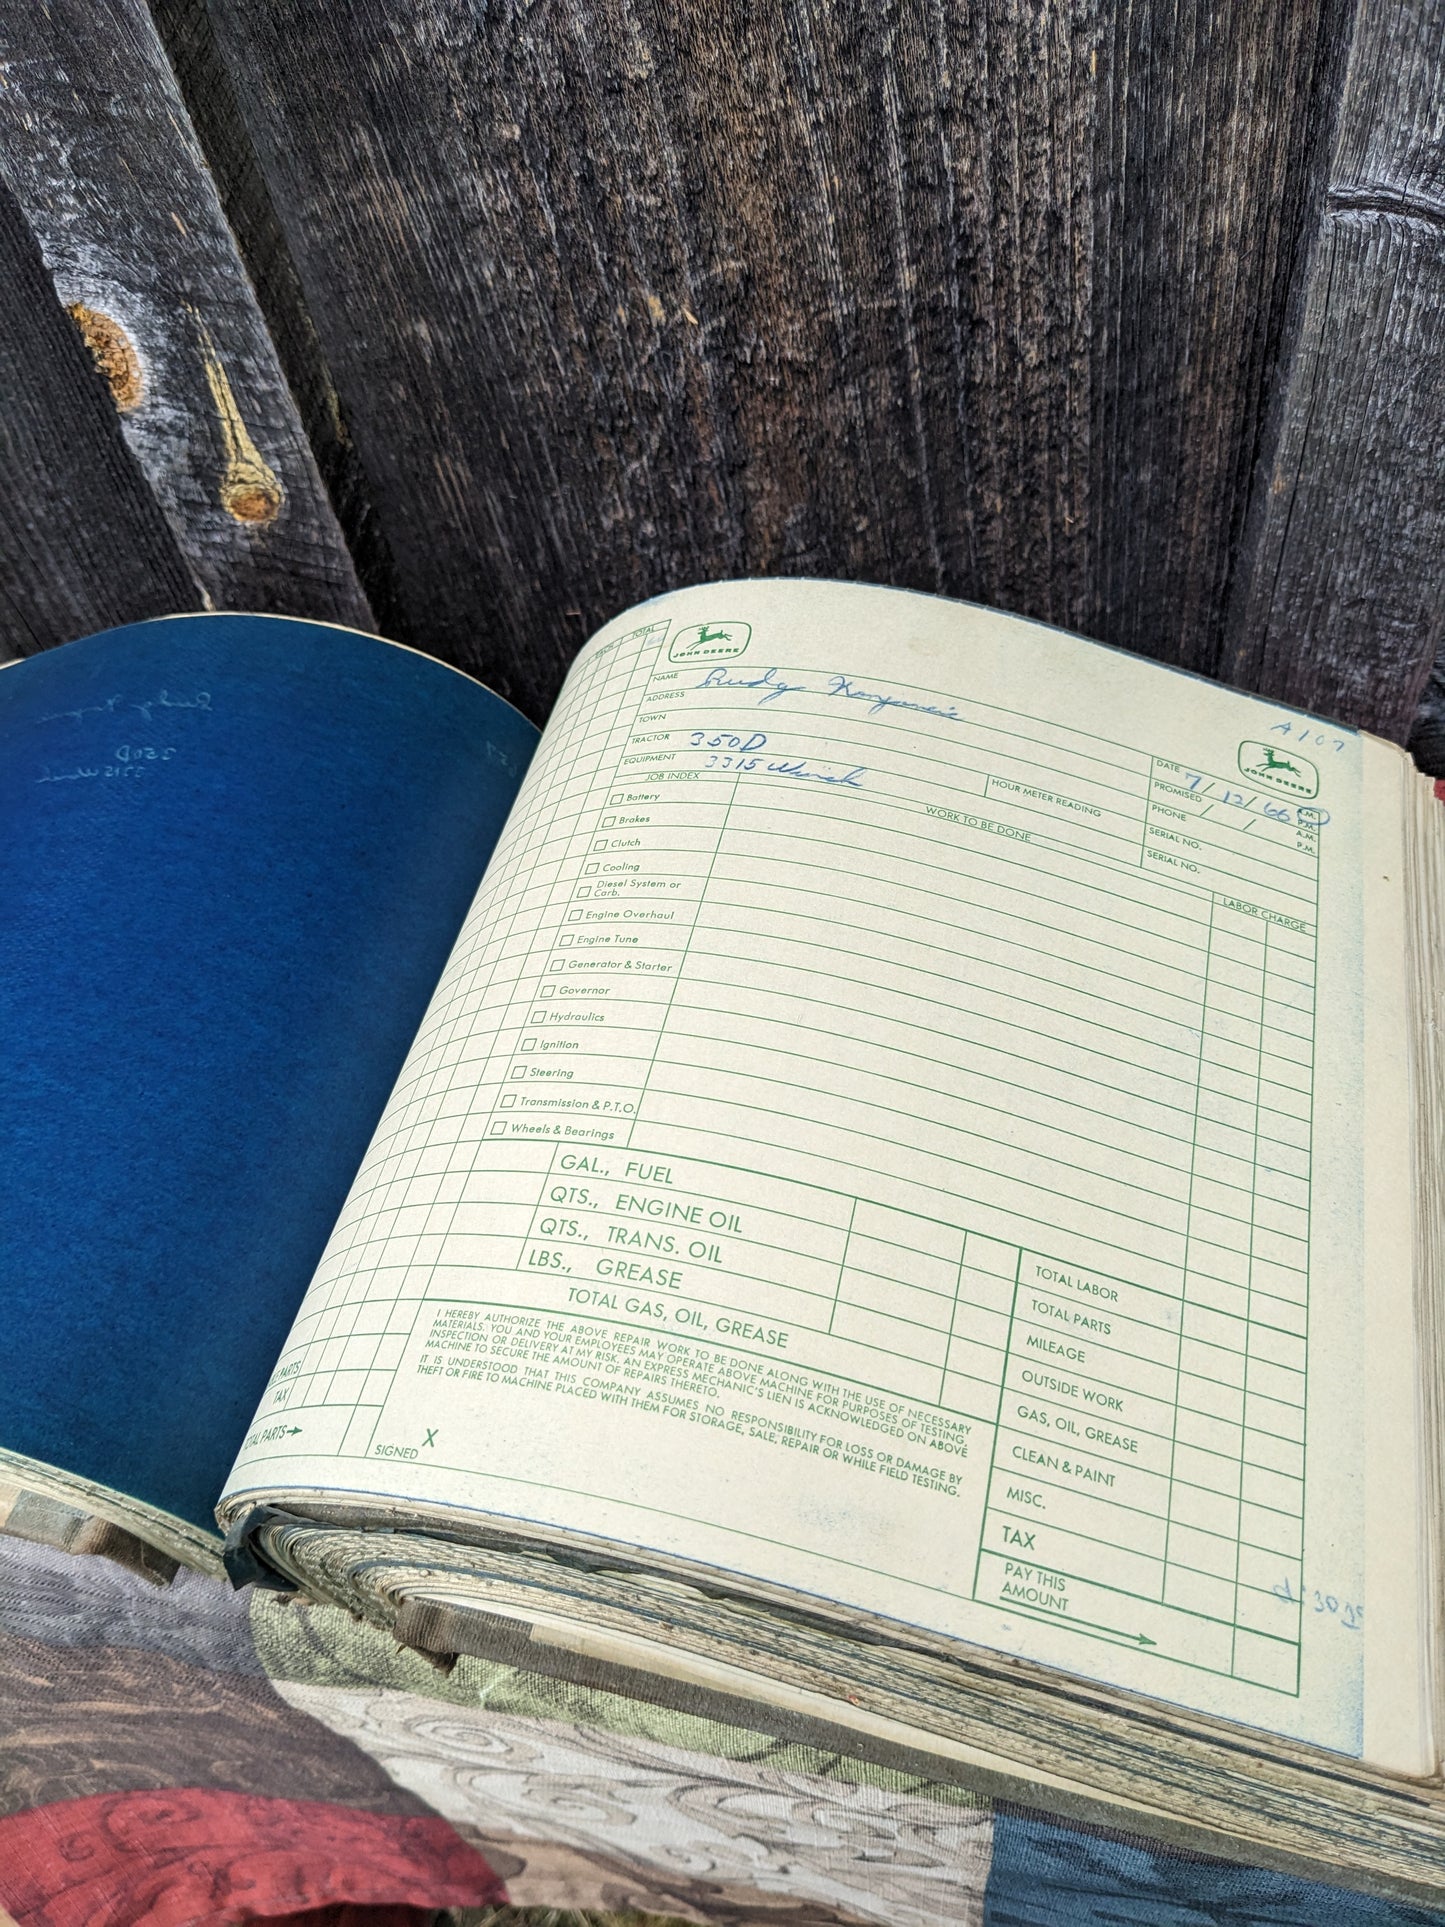 EACH TOTAL
JOHN DEERE
A107
JOHN DEERE
NAME Rudy
ADDRESS
TOWN
TRACTOR 350D
EQUIPMENT 3315 Winch
DATE 7/12/66 A.M. P.M.
PROMISED / / A.M. P.M.
PHONE
SERIAL NO.
SERIAL NO.
HOUR METER READING
JOB INDEX
WORK TO BE DONE
LABOR CHARGE
Battery
Brakes
Clutch
Cooling
Diesel System or
Carb.
Engine Overhaul
Engine Tune
Generator & Starter
Governor
Hydraulics
Ignition
Steering
Transmission & P.T.O.
Wheels & Bearings
GAL., FUEL
QTS., ENGINE OIL
QTS., TRANS. OIL
LBS., GREASE
TOTAL GAS, OIL, GREASE
I HEREBY AUTHORIZE THE ABOVE REPAIR WORK TO BE DONE ALONG WITH THE USE OF NECESSARY
MATERIALS. YOU AND YOUR EMPLOYEES MAY OPERATE ABOVE MACHINE FOR PURPOSES OF TESTING,
INSPECTION OR DELIVERY AT MY RISK. AN EXPRESS MECHANIC'S LIEN IS ACKNOWLEDGED ON ABOVE
MACHINE TO SECURE THE AMOUNT OF REPAIRS THERETO.
IT IS UNDERSTOOD THAT THIS COMPANY ASSUMES NO RESPONSIBILITY FOR LOSS OR DAMAGE BY
THEFT OR FIRE TO MACHINE PLACED WITH THEM FOR STORAGE, SALE, REPAIR OR WHILE FIELD TESTING.
SIGNED X
TOTAL LABOR
TOTAL PARTS
MILEAGE
OUTSIDE WORK
GAS, OIL, GREASE
CLEAN & PAINT
MISC.
TAX
PAY THIS
AMOUNT
PARTS
TAX
TOTAL PARTS